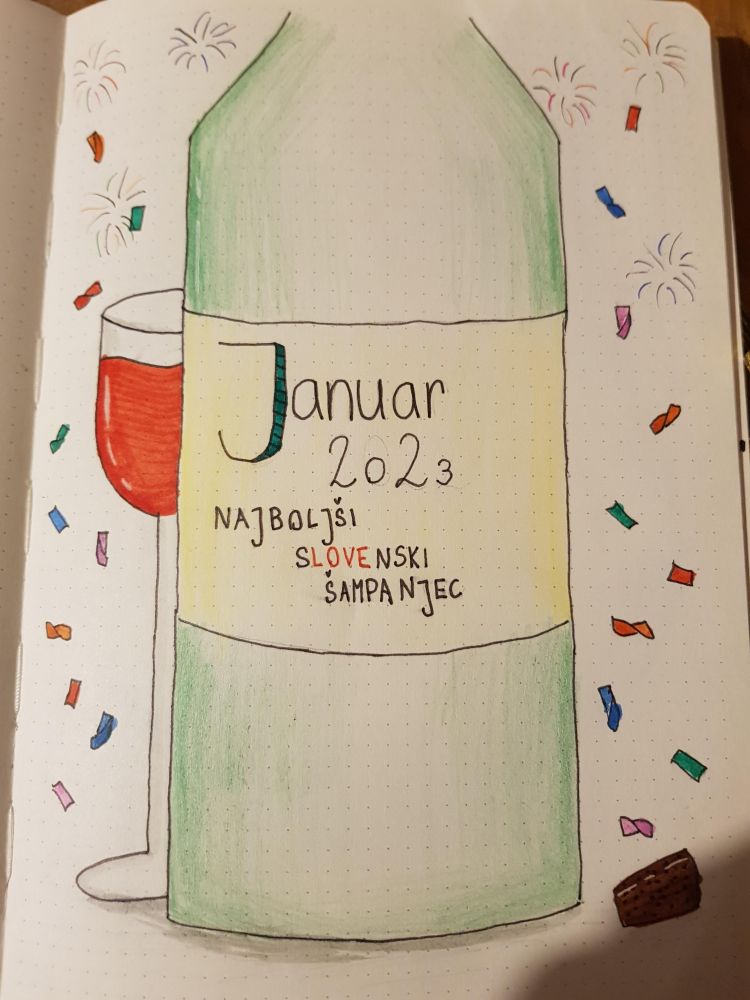 Januar
2023
NAJBOLJŠI
SLOVENSKI
ŠAMPANJEC